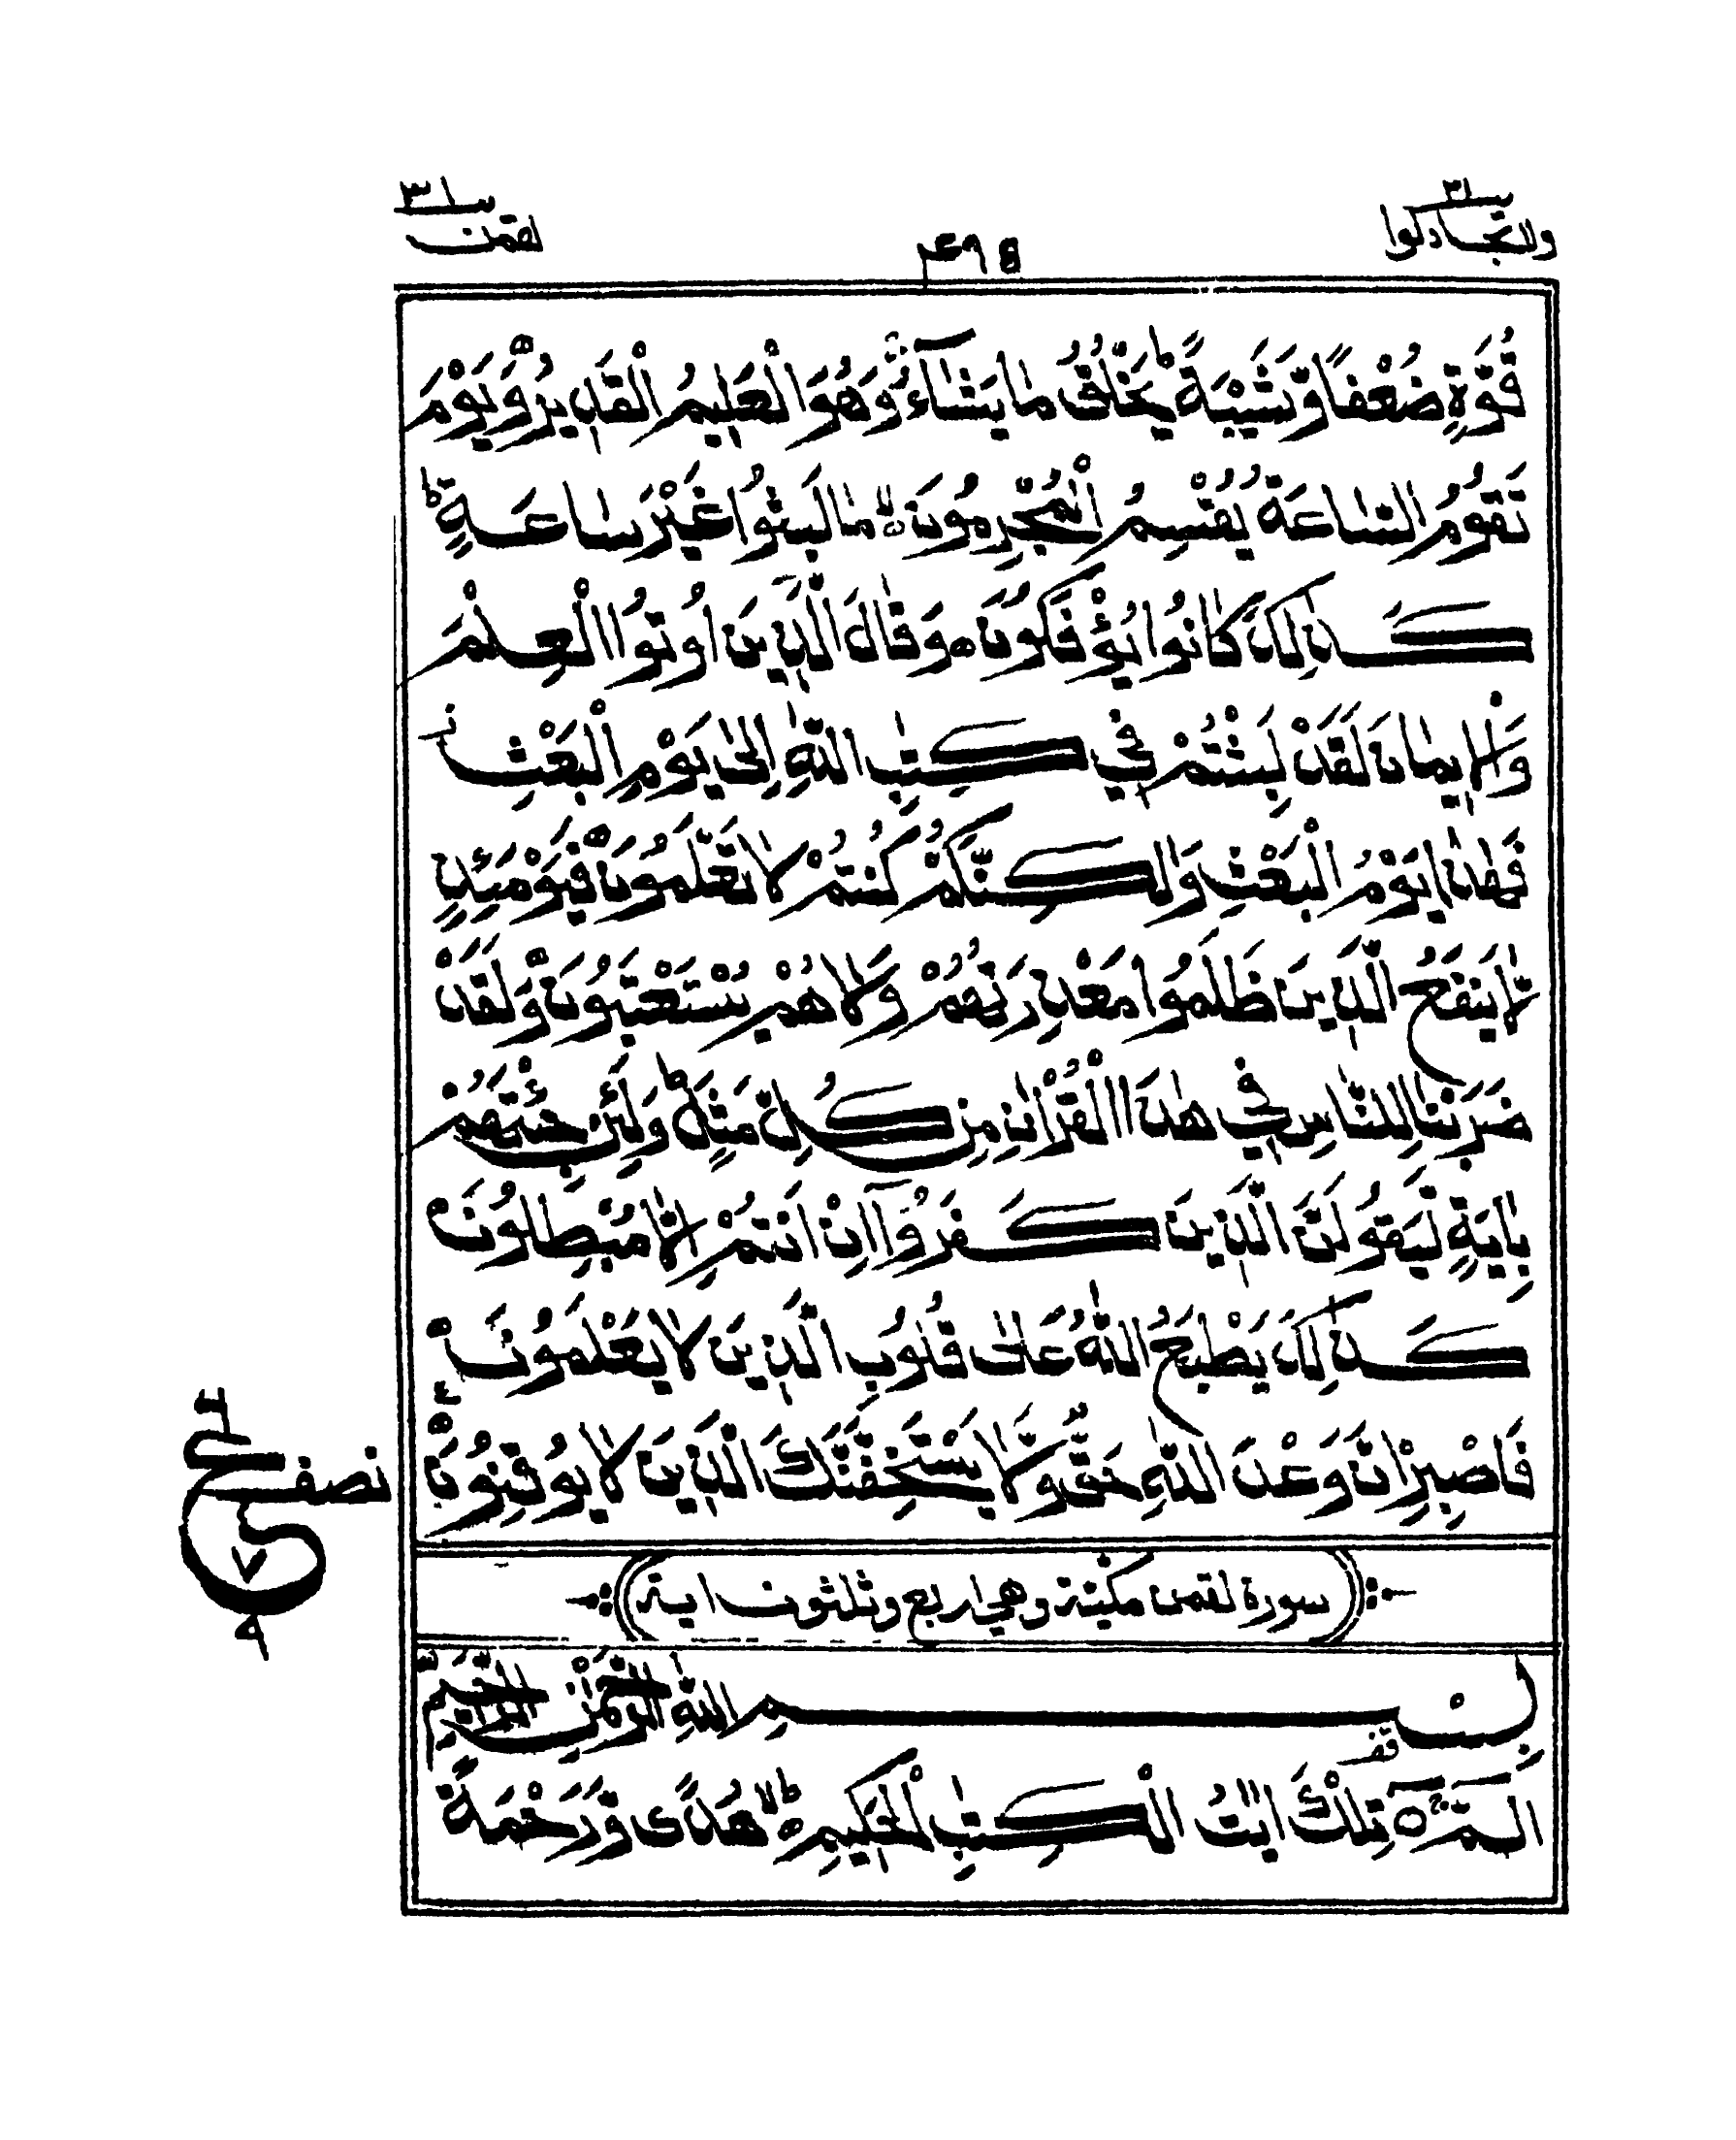 ولاتجادلوا ٣١
لقمن ٣١
قُوَّةٍ ضُعْفًا وَّشَيْبَةً ؕ يَخْلُقُ مَا يَشَآءُ ۚ وَهُوَ الْعَلِيْمُ الْقَدِيْرُ۝ وَيَوْمَ
تَقُوْمُ السَّاعَةُ يُقْسِمُ الْمُجْرِمُوْنَ ۙ مَا لَبِثُوْا غَيْرَ سَاعَةٍ ؕ
كَذٰلِكَ كَانُوْا يُؤْفَكُوْنَ۝ وَقَالَ الَّذِيْنَ اُوْتُوا الْعِلْمَ
وَالْاِيْمَانَ لَقَدْ لَبِثْتُمْ فِيْ كِتٰبِ اللّٰهِ اِلٰى يَوْمِ الْبَعْثِ ز
فَهٰذَا يَوْمُ الْبَعْثِ وَلٰكِنَّكُمْ كُنْتُمْ لَا تَعْلَمُوْنَ۝ فَيَوْمَئِذٍ
لَّا يَنْفَعُ الَّذِيْنَ ظَلَمُوْا مَعْذِرَتُهُمْ وَلَا هُمْ يُسْتَعْتَبُوْنَ۝ وَلَقَدْ
ضَرَبْنَا لِلنَّاسِ فِيْ هٰذَا الْقُرْاٰنِ مِنْ كُلِّ مَثَلٍ ؕ وَلَئِنْ جِئْتَهُمْ
بِاٰيَةٍ لَّيَقُوْلَنَّ الَّذِيْنَ كَفَرُوْٓا اِنْ اَنْتُمْ اِلَّا مُبْطِلُوْنَ۝
كَذٰلِكَ يَطْبَعُ اللّٰهُ عَلٰى قُلُوْبِ الَّذِيْنَ لَا يَعْلَمُوْنَ۝
فَاصْبِرْ اِنَّ وَعْدَ اللّٰهِ حَقٌّ وَّلَا يَسْتَخِفَّنَّكَ الَّذِيْنَ لَا يُوْقِنُوْنَ۝
نصف ع ٧ ٩
سورة لقمن مكية وهي اربع وثلثون اية
بِسْمِ اللّٰهِ الرَّحْمٰنِ الرَّحِيْمِ
الٓمّٓ ۝ قف تِلْكَ اٰيٰتُ الْكِتٰبِ الْحَكِيْمِ۝ ۙ هُدًى وَّرَحْمَةً